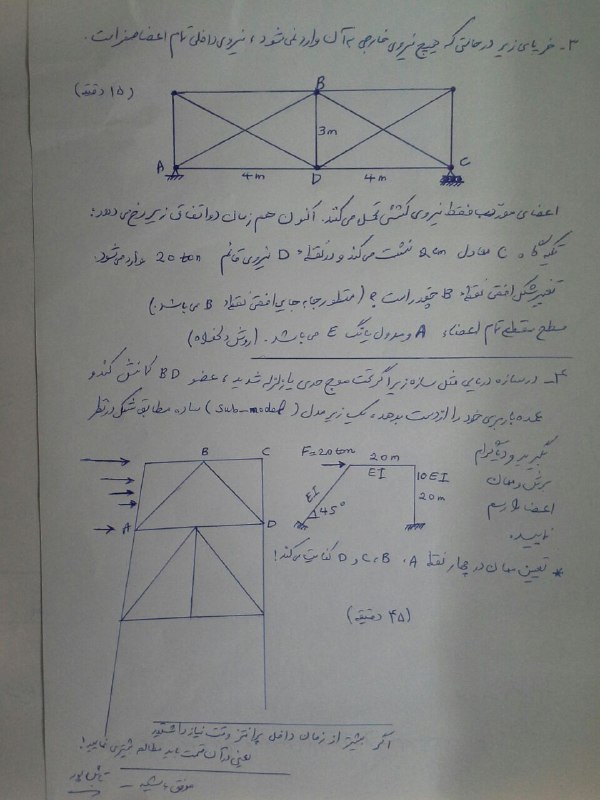 ۳- خرپای زیر در حالتی که هیچ نیروی خارجی به آن وارد نمی شود، نیروی داخلی تمام اعضا صفر است.
(۱۵ دقیقه)
B
3m
A
4m
D
4m
C
اعضای مورب فقط نیروی کششی تحمل می کنند. اکنون هم زمان دو اتفاق زیر رخ می دهد:
تکیه گاه C معادل 2cm نشست می کند و در نقطه D نیروی قائم 20 ton وارد می شود.
تغییر شکل افقی نقطه B چقدر است؟ (منظور جابه جایی افقی نقطه B می باشد.)
سطح مقطع تمام اعضاء A و مدول یانگ E می باشد. (روش دلخواه)
۴- در سازه دریایی مثل سازه زیر اگر تحت موج حدی یا زلزله شدید، عضو BD کمانش کند و
عمده باربری خود را از دست بدهد، یک زیر مدل (sub-model) ساده مطابق شکل در نظر
بگیرید و دیاگرام
برش و ممان
اعضا را رسم
نمایید.
B
C
A
D
F=20 ton
20m
EI
10EI
20m
EI
45°
* تعیین ممان در چهار نقطه A، B، C و D کفایت می کند!
(۴۵ دقیقه)
اگر بیشتر از زمان داخل پرانتز وقت نیاز داشتید
یعنی در آن قسمت باید مطالعه بیشتری نمایید!
موفق باشید -